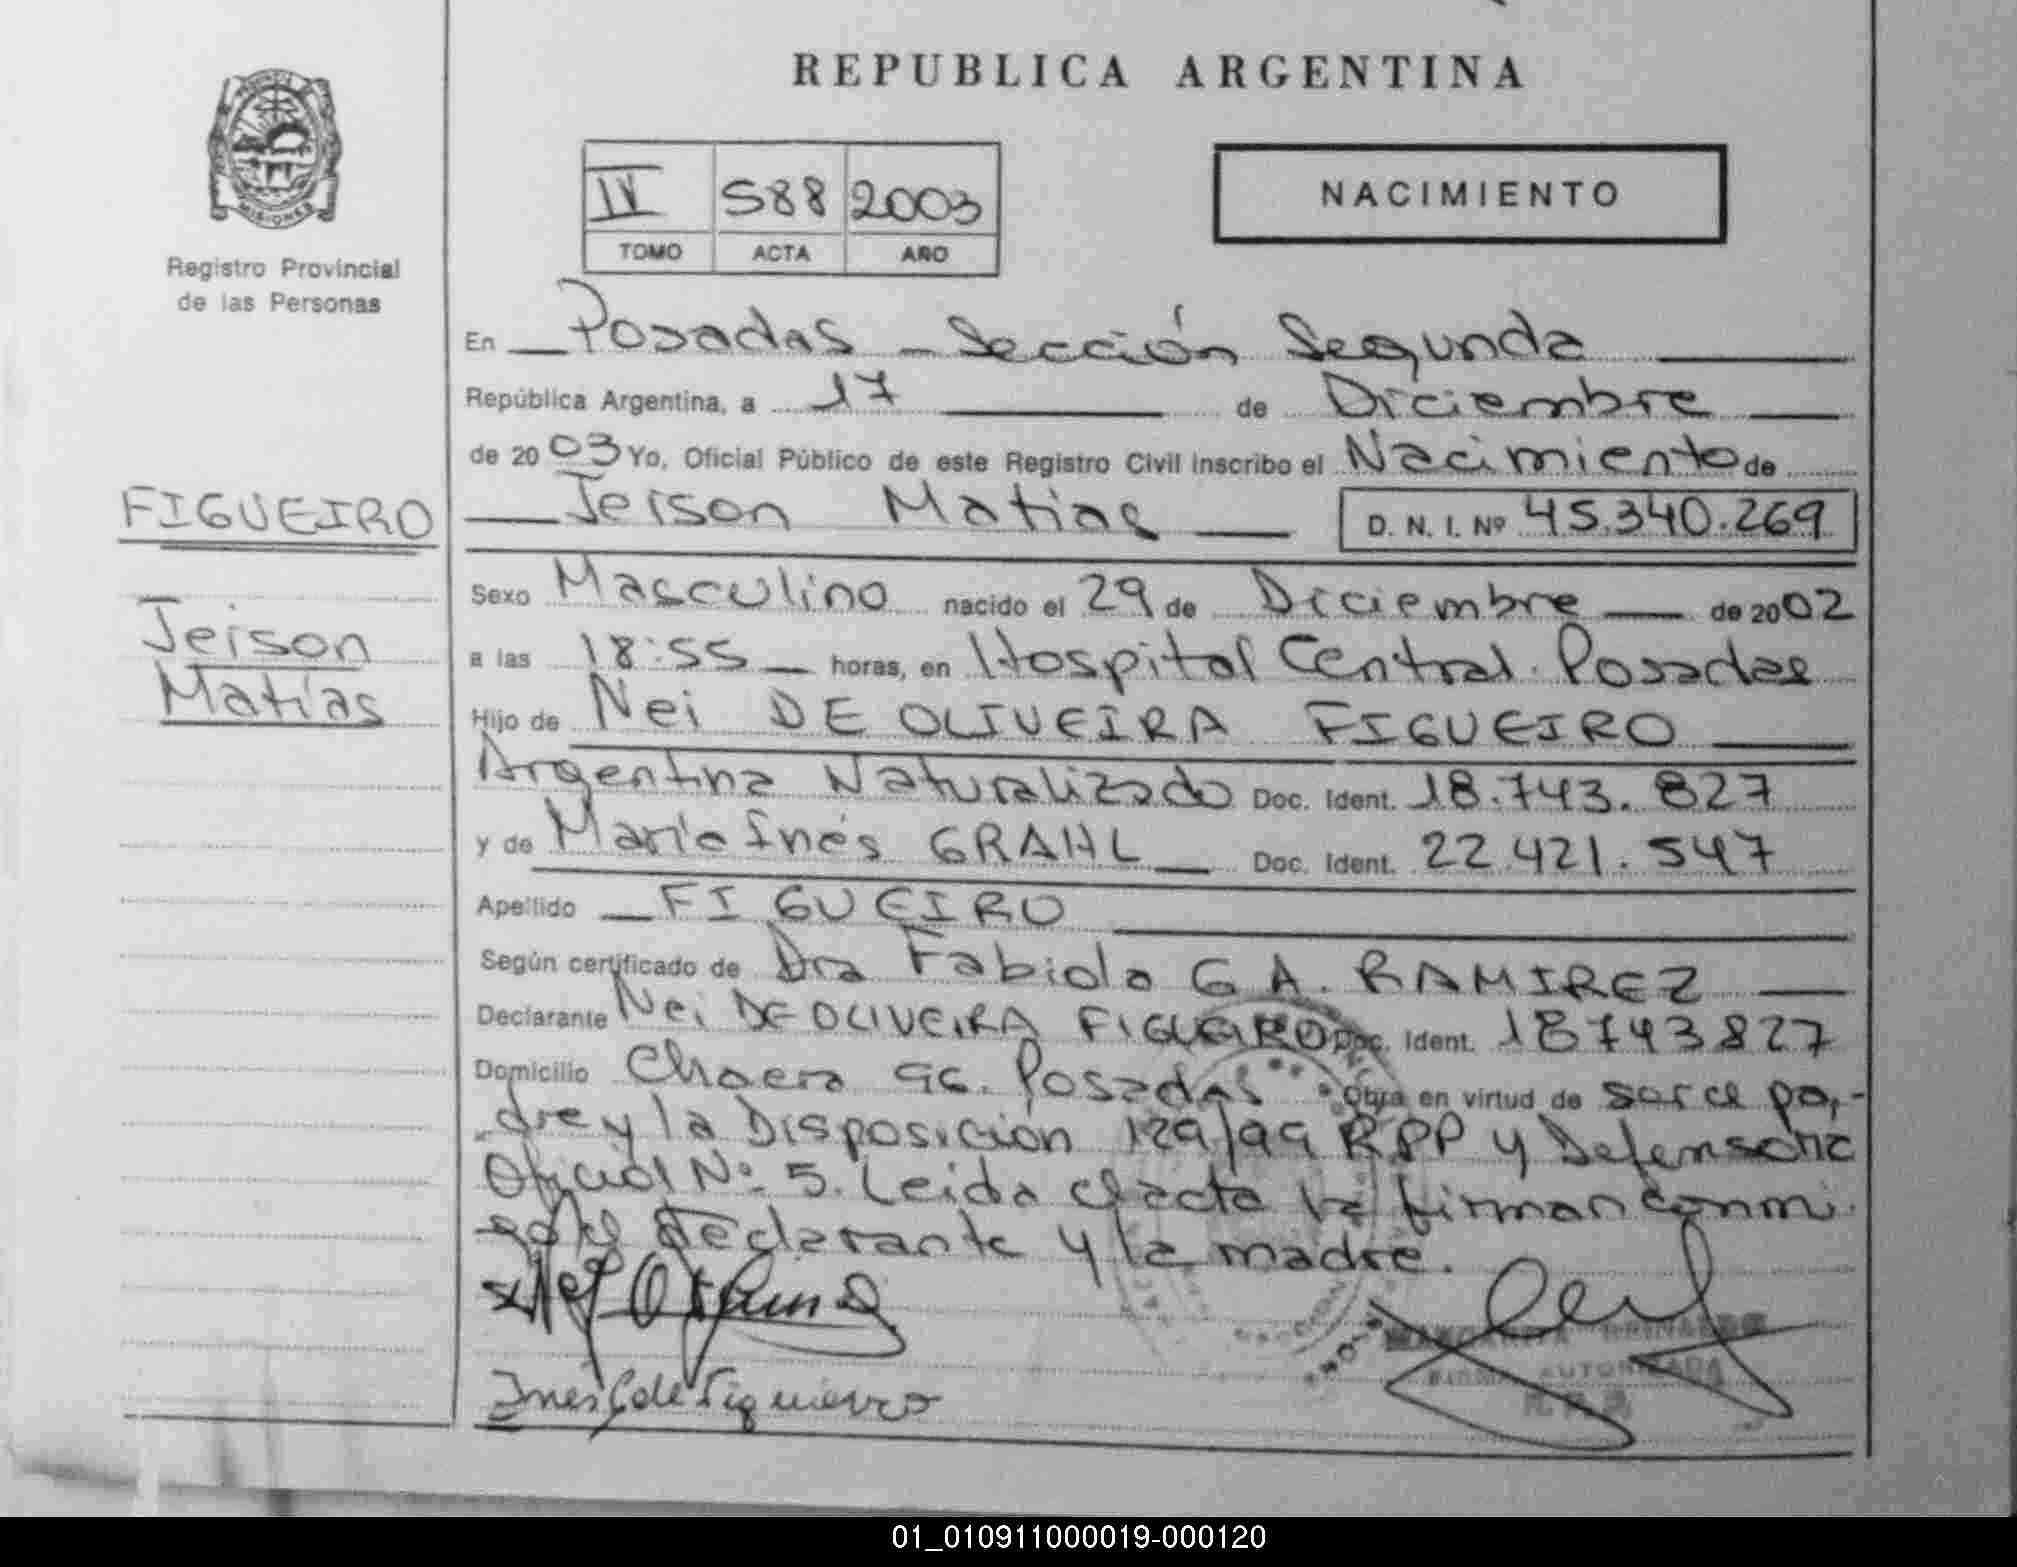 REPUBLICA ARGENTINA
MISIONES
Registro Provincial
de las Personas
IV 588 2003
TOMO ACTA AÑO
NACIMIENTO
En Posadas - Sección Segunda
República Argentina, a 17 de Diciembre
de 2003 Yo, Oficial Público de este Registro Civil inscribo el Nacimiento de
FIGUEIRO
Jeison Matias D. N. I. Nº 45.340.269
Jeison
Matías
Sexo Masculino nacido el 29 de Diciembre de 2002
a las 18:55 horas, en Hospital Central. Posadas
Hijo de Nei DE OLIVEIRA FIGUEIRO
Argentina Naturalizado Doc. Ident. 18.743.827
y de María Inés GRAHL Doc. Ident. 22.421.547
Apellido FIGUEIRO
Según certificado de Dra Fabiola G A. RAMIREZ
Declarante Nei DE OLIVEIRA FIGUEIRO Doc. Ident. 18743827
Domicilio Chacra 96. Posadas Obra en virtud de ser el pa-
dre y la Disposición 129/99 RPP y Defensoria
Oficial Nº 5. Leida el acta la firman conmi
go el declarante y la madre.
Ines G de Figueiro
FIRMA AUTORIZADA
01_010911000019-000120